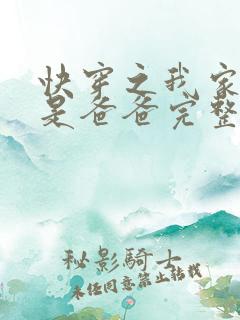 快穿之我家
是爸爸完整
秘影騎士
未经同意禁止转载